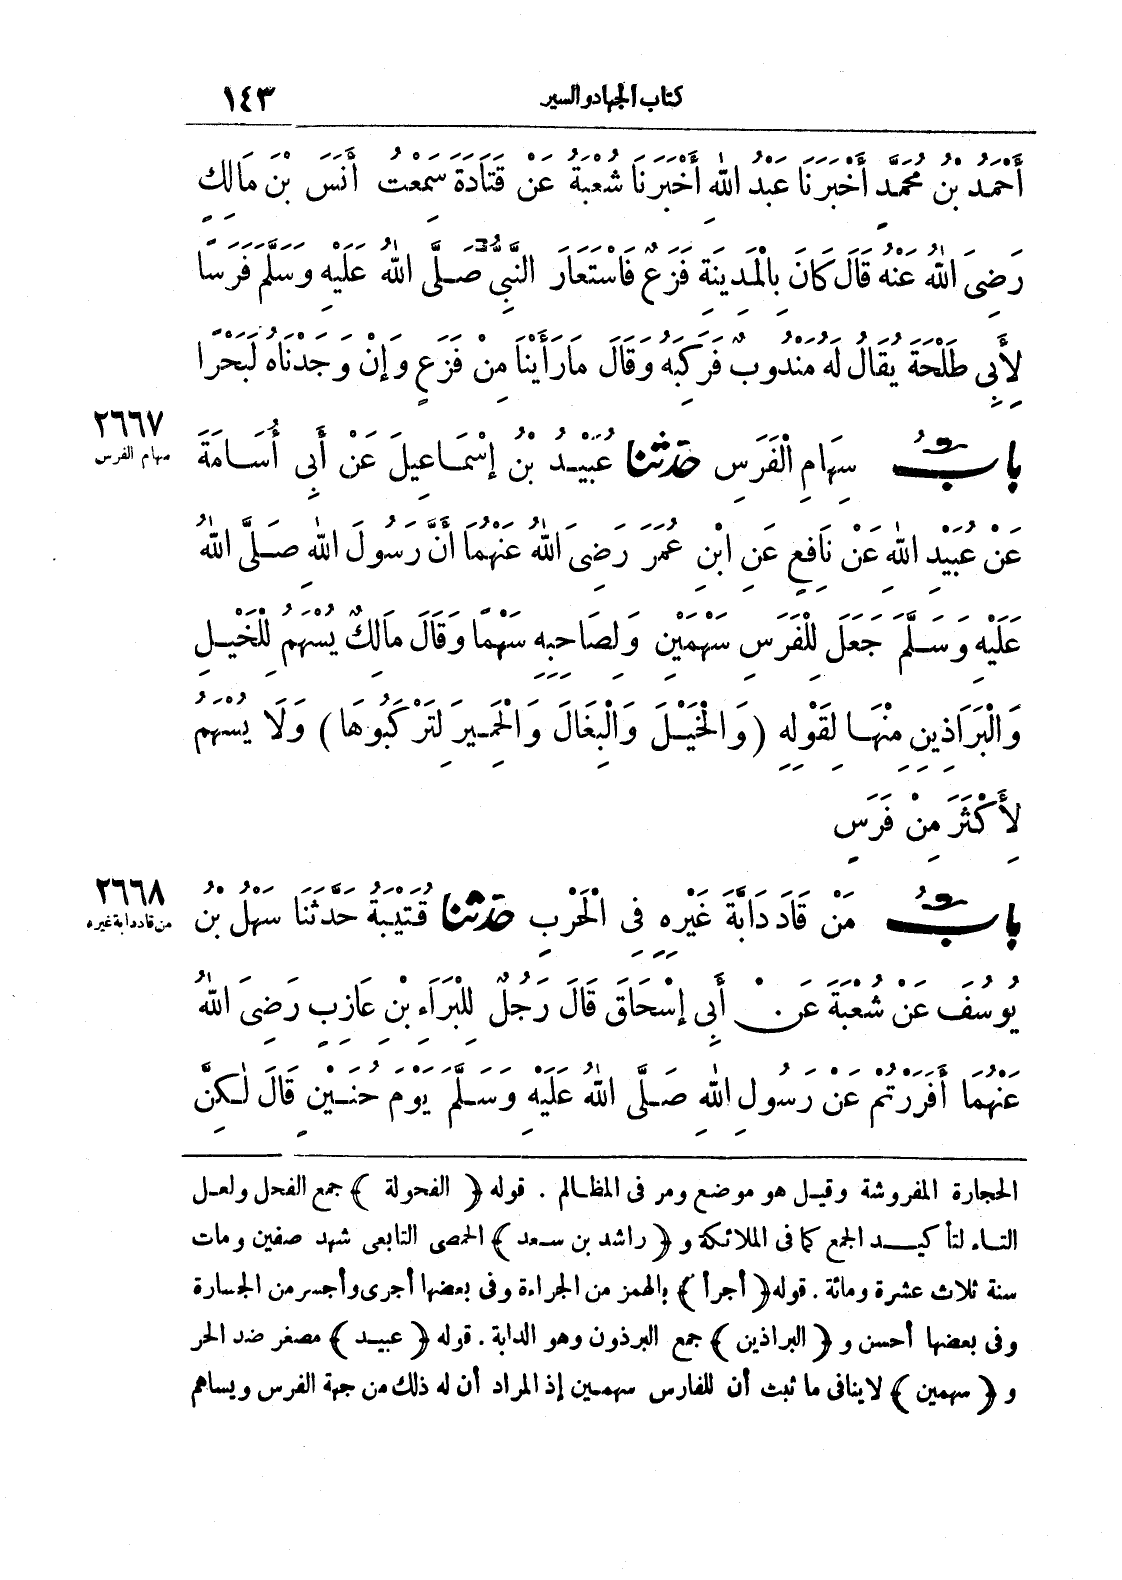 كتاب الجهاد والسير ١٤٣
أَحْمَدُ بْنُ مُحَمَّدٍ أَخْبَرَنَا عَبْدُ اللهِ أَخْبَرَنَا شُعْبَةُ عَنْ قَتَادَةَ سَمِعْتُ أَنَسَ بْنَ مَالِكٍ
رَضِيَ اللهُ عَنْهُ قَالَ كَانَ بِالْمَدِينَةِ فَزَعٌ فَاسْتَعَارَ النَّبِيُّ صَلَّى اللهُ عَلَيْهِ وَسَلَّمَ فَرَسًا
لِأَبِي طَلْحَةَ يُقَالُ لَهُ مَنْدُوبٌ فَرَكِبَهُ وَقَالَ مَا رَأَيْنَا مِنْ فَزَعٍ وَإِنْ وَجَدْنَاهُ لَبَحْرًا
٢٦٦٧
سهام الفرس
بَابُ سِهَامِ الْفَرَسِ حدثنا عُبَيْدُ بْنُ إِسْمَاعِيلَ عَنْ أَبِي أُسَامَةَ
عَنْ عُبَيْدِ اللهِ عَنْ نَافِعٍ عَنِ ابْنِ عُمَرَ رَضِيَ اللهُ عَنْهُمَا أَنَّ رَسُولَ اللهِ صَلَّى اللهُ
عَلَيْهِ وَسَلَّمَ جَعَلَ لِلْفَرَسِ سَهْمَيْنِ وَلِصَاحِبِهِ سَهْمًا وَقَالَ مَالِكٌ يُسْهَمُ لِلْخَيْلِ
وَالْبَرَاذِينِ مِنْهَا لِقَوْلِهِ (وَالْخَيْلَ وَالْبِغَالَ وَالْحَمِيرَ لِتَرْكَبُوهَا) وَلَا يُسْهَمُ
لِأَكْثَرَ مِنْ فَرَسٍ
٢٦٦٨
من قاد دابة غيره
بَابُ مَنْ قَادَ دَابَّةَ غَيْرِهِ فِي الْحَرْبِ حدثنا قُتَيْبَةُ حَدَّثَنَا سَهْلُ بْنُ
يُوسُفَ عَنْ شُعْبَةَ عَنْ أَبِي إِسْحَاقَ قَالَ رَجُلٌ لِلْبَرَاءِ بْنِ عَازِبٍ رَضِيَ اللهُ
عَنْهُمَا أَفَرَرْتُمْ عَنْ رَسُولِ اللهِ صَلَّى اللهُ عَلَيْهِ وَسَلَّمَ يَوْمَ حُنَيْنٍ قَالَ لَكِنَّ
الحجارة المفروشة وقيل هو موضع ومر فى المظالم . قوله ﴿ الفحولة ﴾ جمع الفحل ولعل
التاء لتأكيد الجمع كما فى الملائكة و ﴿ راشد بن سعد ﴾ الحمصى التابعى شهد صفين ومات
سنة ثلاث عشرة ومائة . قوله ﴿ أجرأ ﴾ بالهمز من الجراءة وفى بعضها أجرى وأجسر من الجسارة
وفى بعضها أحسن و ﴿ البراذين ﴾ جمع البرذون وهو الدابة . قوله ﴿ عبيد ﴾ مصغر ضد الحر
و ﴿ سهمين ﴾ لاينافى ما ثبث أن للفارس سهمين إذ المراد أن له ذلك من جهة الفرس ويساهم